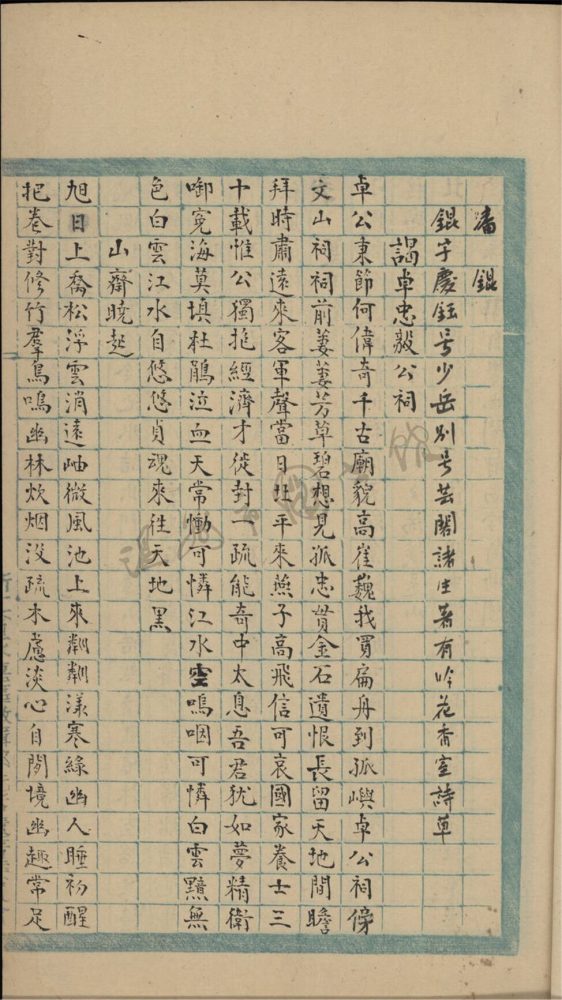 潘錕
錕字慶鈺号少岳别号芸閣諸生著有吟花香室詩草
謁卓忠毅公祠
卓公秉節何偉奇千古廟貌高崔巍我買扁舟到孤嶼卓公祠傍
文山祠祠前萋萋芳草碧想見孤忠貫金石遺恨長留天地間瞻
拜時肅遠來客軍聲當日壯平來燕子高飛信可哀國家養士三
十載惟公獨抱經濟才徙封一疏能奇中太息吾君犹如夢精衛
啣寃海莫填杜鵑泣血天常慟可憐江水空嗚咽可憐白雲黯無
色白雲江水自悠悠貞魂來往天地黑
山齋曉起
旭日上喬松浮雲消遠岫微風池上來粼粼漾寒綠幽人睡初醒
把卷對修竹羣鳥鳴幽林炊烟没疏木慮淡心自閒境幽趣常足